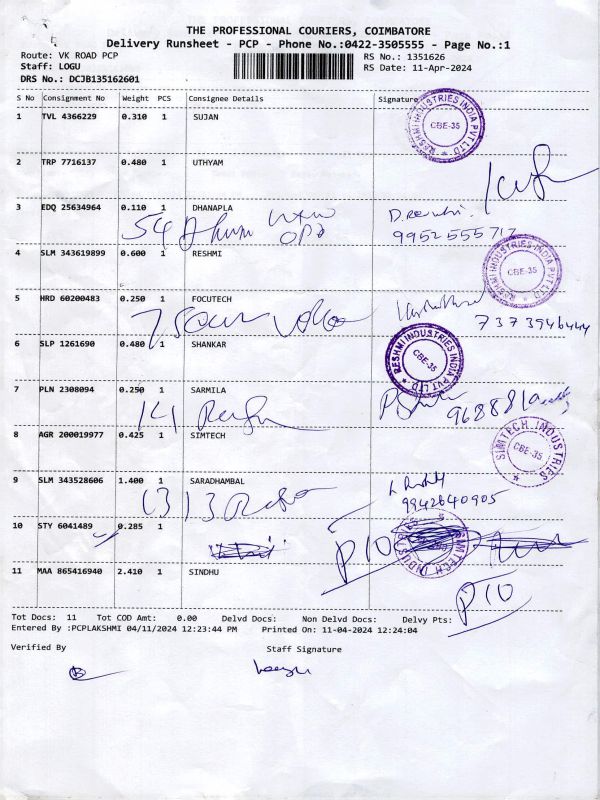 THE PROFESSIONAL COURIERS, COIMBATORE
Delivery Runsheet - PCP - Phone No.:0422-3505555 - Page No.:1
Route: VK ROAD PCP RS No.: 1351626
Staff: LOGU RS Date: 11-Apr-2024
DRS No.: DCJB135162601
S No Consignment No Weight PCS Consignee Details Signature
1 TVL 4366229 0.310 1 SUJAN
RESHMI INDUSTRIES INDIA PVT LTD
CBE-35
2 TRP 7716137 0.480 1 UTHYAM
3 EDQ 25634964 0.110 1 DHANAPLA
54
9952555717
4 SLM 343619899 0.600 1 RESHMI
RESHMI INDUSTRIES INDIA PVT LTD
CBE-35
5 HRD 60200483 0.250 1 FOCUTECH
7373946444
6 SLP 1261690 0.480 1 SHANKAR
RESHMI INDUSTRIES INDIA PVT LTD
CBE-35
7 PLN 2308094 0.250 1 SARMILA
14
8 AGR 200019977 0.425 1 SIMTECH
SIMTECH INDUSTRIES
CBE-35
9 SLM 343528606 1.400 1 SARADHAMBAL
9942640905
10 STY 6041489 0.285 1
SIMTECH INDUSTRIES
P10
11 MAA 865416940 2.410 1 SINDHU
P10
Tot Docs: 11 Tot COD Amt: 0.00 Delvd Docs: Non Delvd Docs: Delvy Pts:
Entered By :PCPLAKSHMI 04/11/2024 12:23:44 PM Printed On: 11-04-2024 12:24:04
Verified By Staff Signature